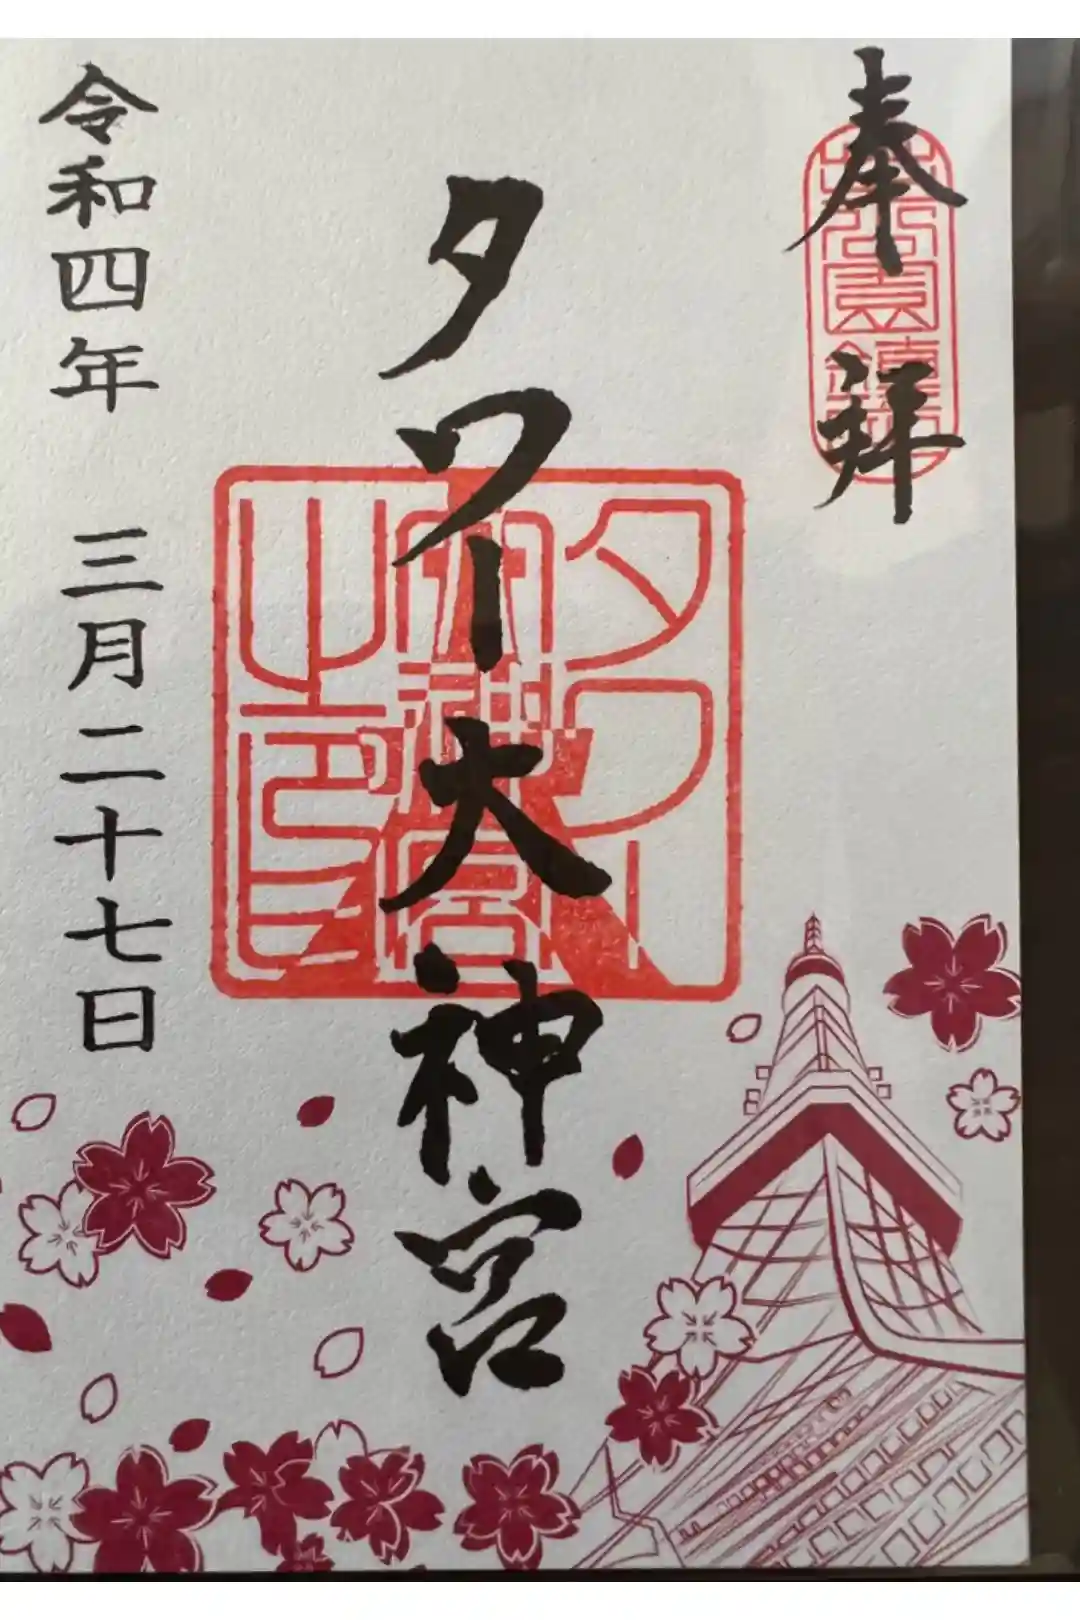 奉拝
タワー大神宮
タワー大神宮之印
令和四年 三月二十七日